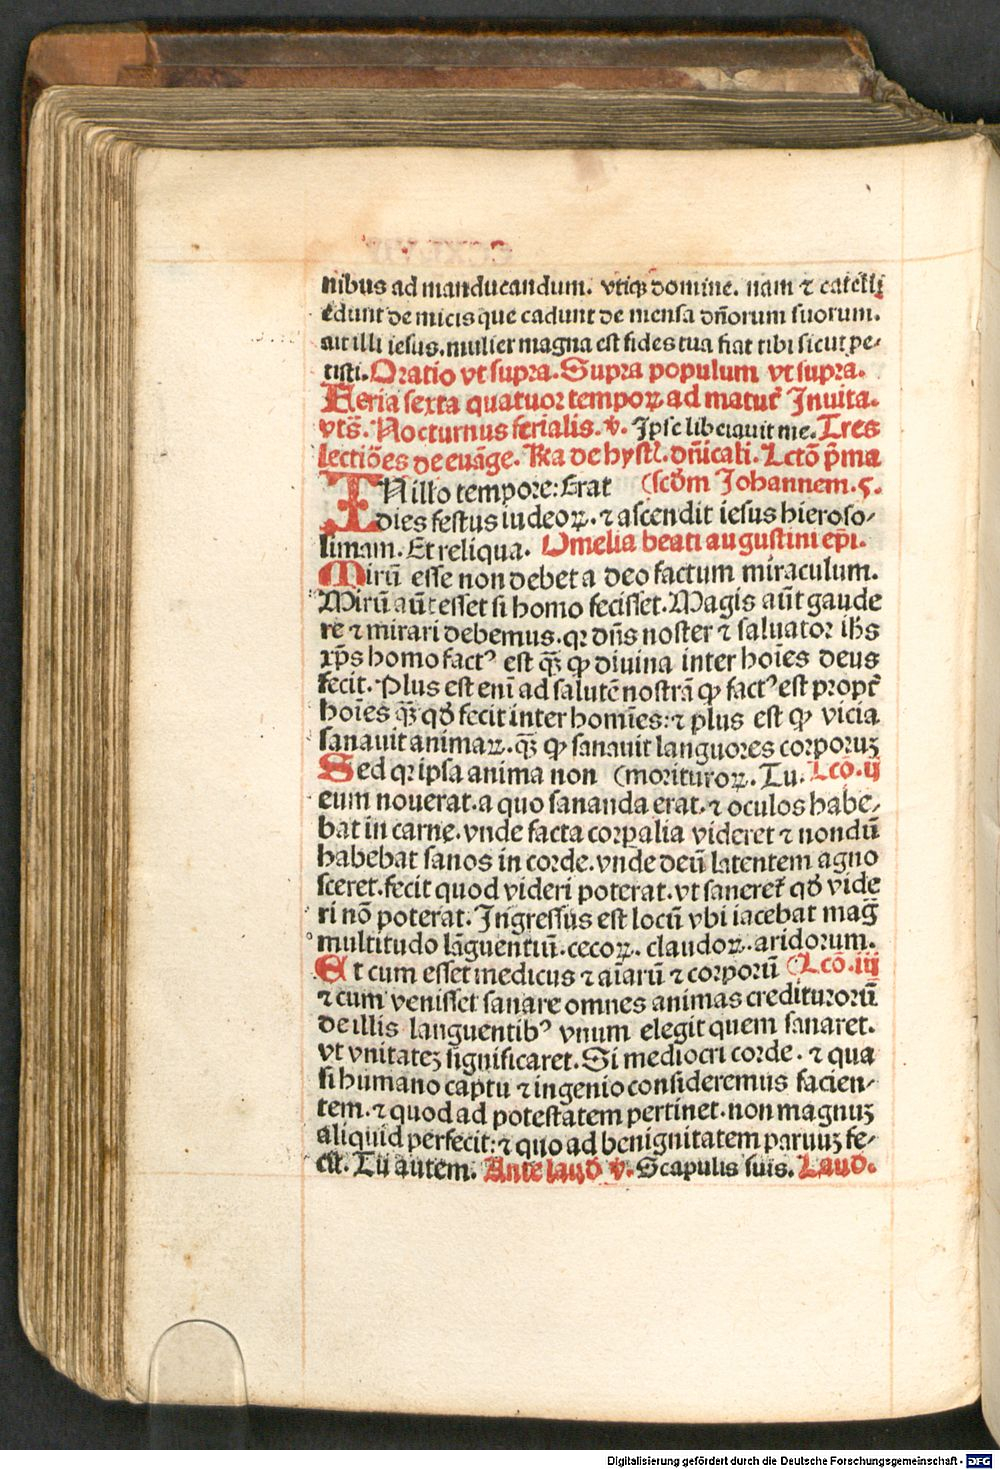 nibus ad manducandum. vtiqꝫ domine. nam ⁊ catelli
edunt de micis que cadunt de mensa dn̄orum suorum.
ait illi iesus. mulier magna est fides tua fiat tibi sicut pe⸗
tisti. Oratio vt supra. Supra populum vt supra.
Feria sexta quatuor tempoꝝ ad matut̄ Inuita.
vts̄. Nocturnus ferialis. ꝟ. Ipse liberauit me. Tres
lectiōes de euāge. Ra de hystͥ. dn̄icali. Lctō p̄ma
IN illo tempore: Erat (scd̄m Johannem. 5.
dies festus iudeoꝝ. ⁊ ascendit iesus hieroso⸗
limam. Et reliqua. Omelia beati augustini ep̄i.
Mirū esse non debet a deo factum miraculum.
Mirū aūt esset si homo fecisset. Magis aūt gaude
re ⁊ mirari debemus. qꝛ dn̄s noster ⁊ saluator ih̄s
xp̄s homo factꝰ est qͣ̄ ꝙ diuina inter hoīes deus
fecit. Plus est enī ad salutē nostrā ꝙ factꝰ est propt̄
hoīes qͣ̄ qd̄ fecit inter homīes: ⁊ plus est ꝙ vicia
sanauit animaꝝ. qͣ̄ ꝙ sanauit languores corporuꝫ
Sed qꝛ ipsa anima non (morituroꝝ. Tu. Lcō. ij
eum nouerat. a quo sananda erat. ⁊ oculos habe⸗
bat in carne. vnde facta corꝑalia videret ⁊ nondū
habebat sanos in corde. vnde deū latentem agno
sceret. fecit quod videri poterat. vt sanaret̄ qd̄ vide
ri nō poterat. Ingressus est locū vbi iacebat maḡ
multitudo lāguentiū. cecoꝝ. claudoꝝ. aridorum.
Et cum esset medicus ⁊ aīarū ⁊ corporū (Lcō. iij
⁊ cum venisset sanare omnes animas crediturorū
de illis languentibꝰ vnum elegit quem sanaret.
vt vnitateꝫ significaret. Si mediocri corde. ⁊ qua
si humano captu ⁊ ingenio consideremus facien⸗
tem. ⁊ quod ad potestatem pertinet. non magnuꝫ
aliquid perfecit: ⁊ quo ad benignitatem paruuꝫ fe⸗
cit. Tu autem. Ante laud ꝟ. Scapulis suis. Laud.
Digitalisierung gefördert durch die Deutsche Forschungsgemeinschaft - DFG